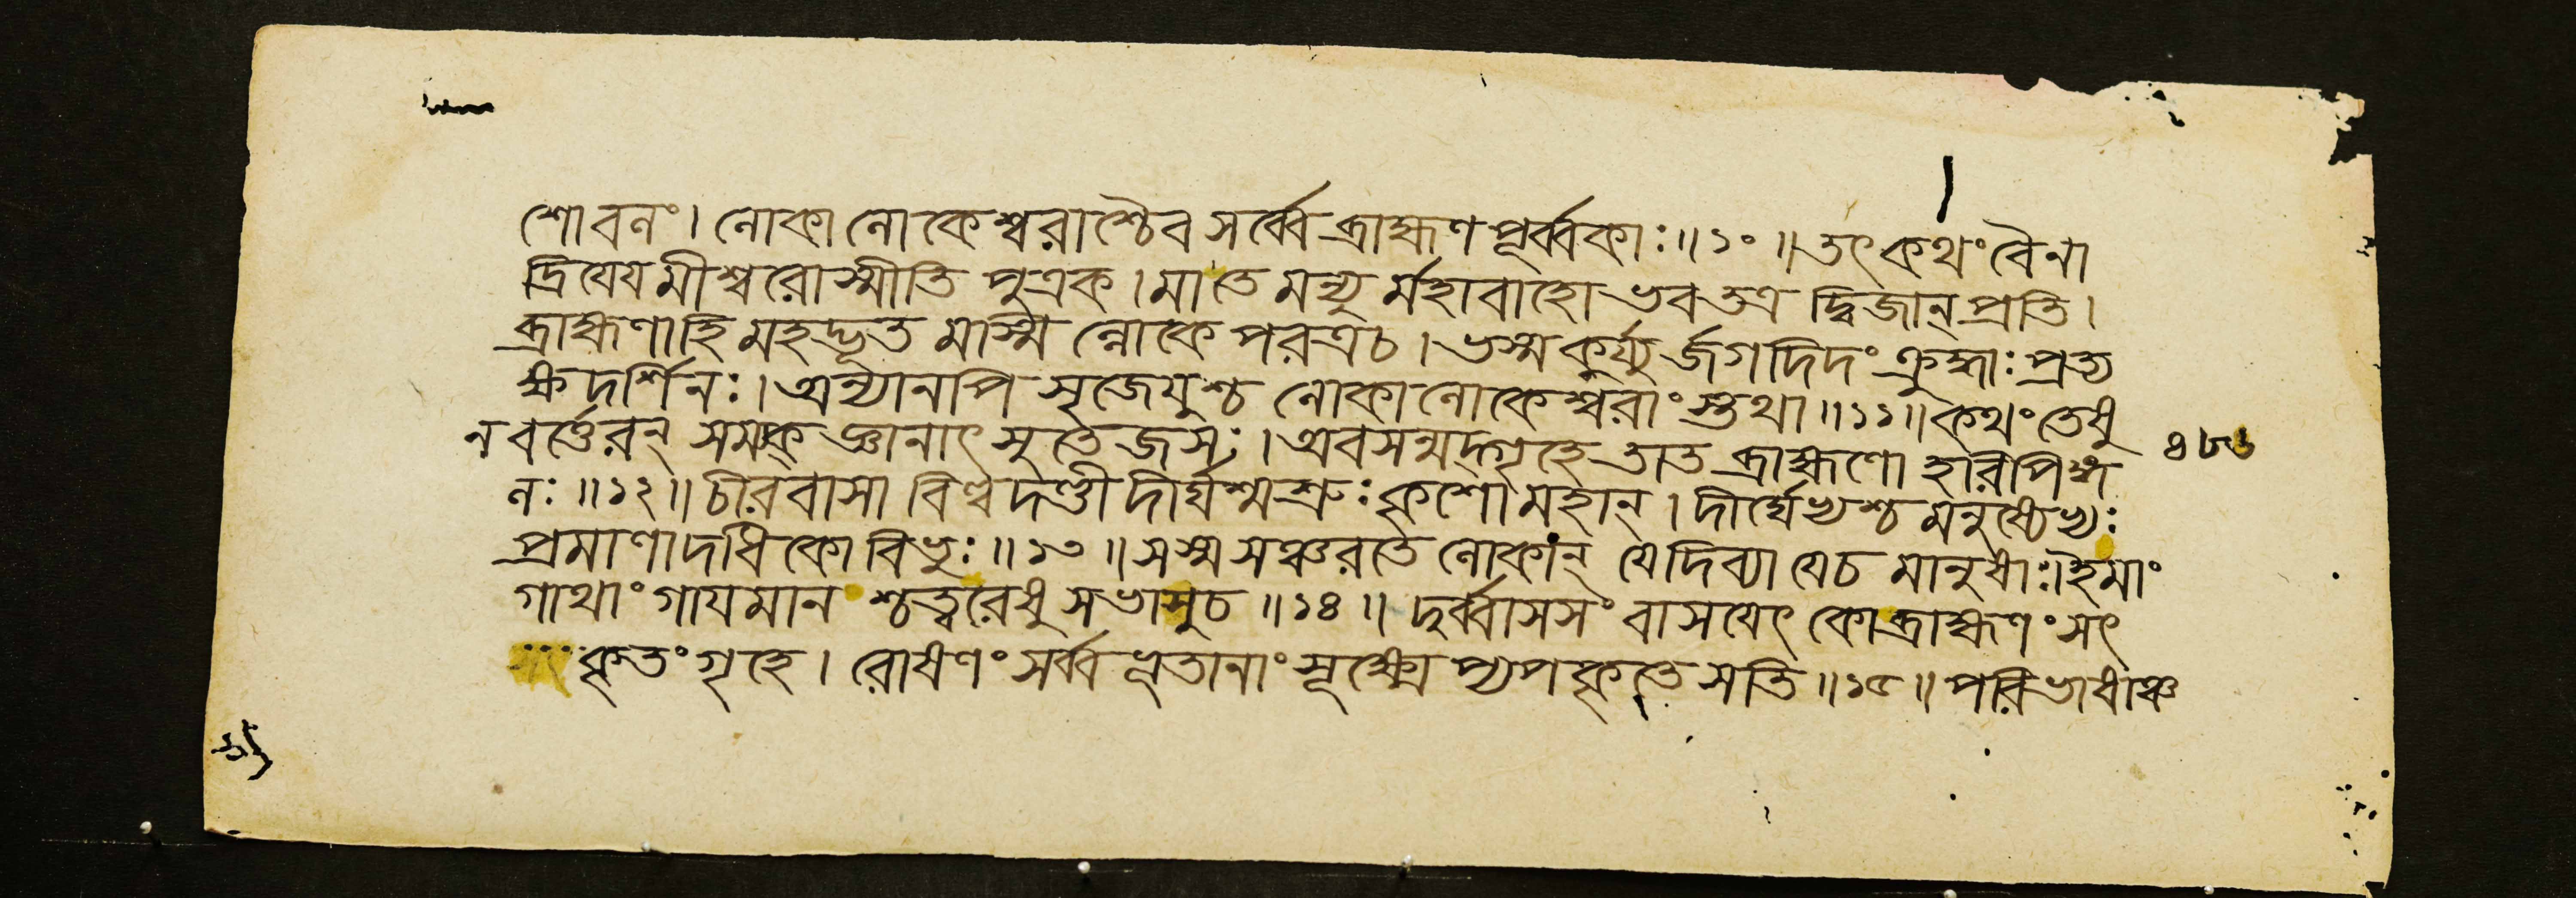 শোবনং। লোকা লোকেশ্বরাশ্চৈব সর্ব্বে ব্রাহ্মণ পূর্ব্বকাঃ॥১০॥তৎ কথং বৈনা
দ্রিযেযমীশ্বরোস্মীতি পুত্রক।মা তে মন্যু র্মহাবাহো ভবত্তত্র দ্বিজান্ প্রতি।
ব্রাহ্মণাহি মহদ্ভূত মাস্মি ল্লোকে পরত্রচ।ভস্ম কুর্য্যু র্জগদিদং ক্রুদ্ধাঃ প্রত্য
ক্ষ দর্শিনঃ।অন্যানপি সৃজেযুশ্চ লোকা লোকেশ্বরাং স্তথা॥১১॥কথং তেষু
ন বর্ত্তেরন্ সম্যক্ জ্ঞানাৎ সুতেজসঃ।অবসন্মদ্গৃহে তাত ব্রাহ্মণো হরিপিঙ্গ
লঃ॥১২॥চীরবাসা বিল্ব দণ্ডী দীর্ঘশ্মশ্রুঃ কৃশো মহান্। দীর্ঘেভ্যশ্চ মনুষ্যেভ্যঃ
প্রমাণাদধিকো বিভুঃ॥১৩॥সস্ম সঞ্চরতে লোকান্ যে দিব্যা যেচ মানুষাঃ।ইমাং
গাথাং গাযমান শ্চত্বরেষু সভাসুচ॥১৪॥ দুর্ব্বাসসং বাসযেৎ কোব্রাহ্মণং সৎ
কৃতং গৃহে। রোষণং সর্ব্ব ভূতানাং সূক্ষ্মে প্যপকৃতে সতি॥১৫॥পরিভাষাঞ্চ